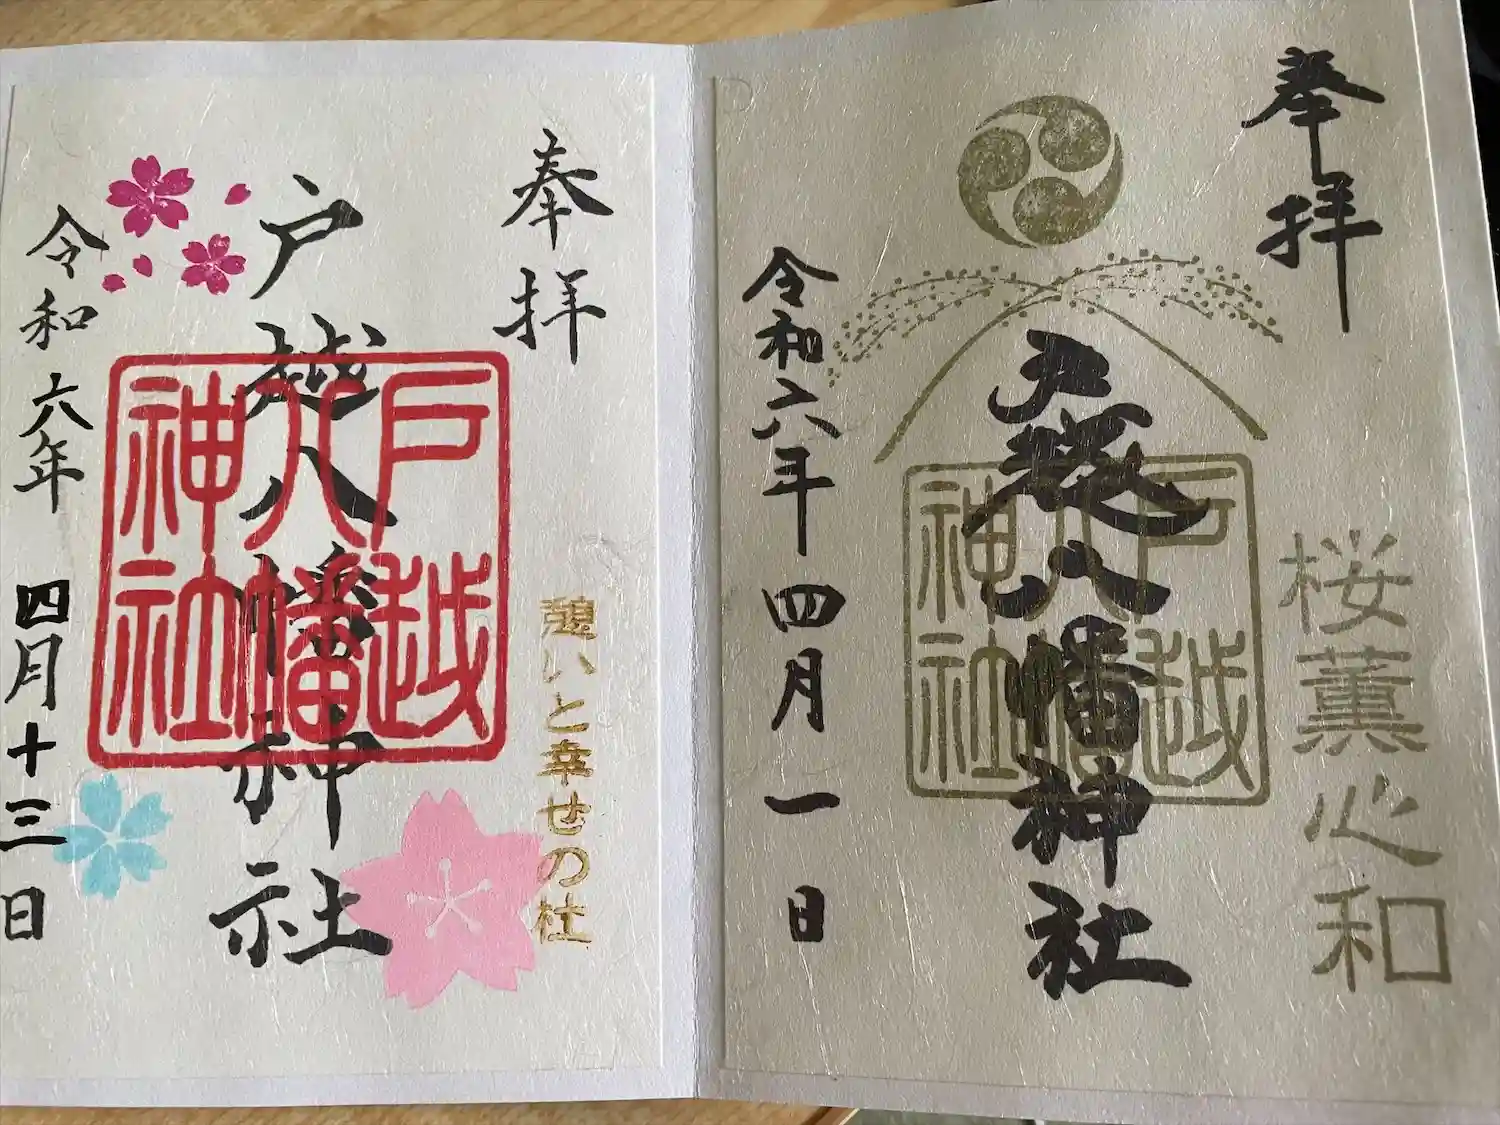 奉拝
桜薫心和
戸越八幡神社
戸越八幡神社
令和六年四月一日
奉拝
憩いと幸せの杜
戸越八幡神社
戸越八幡神社
令和六年四月十三日